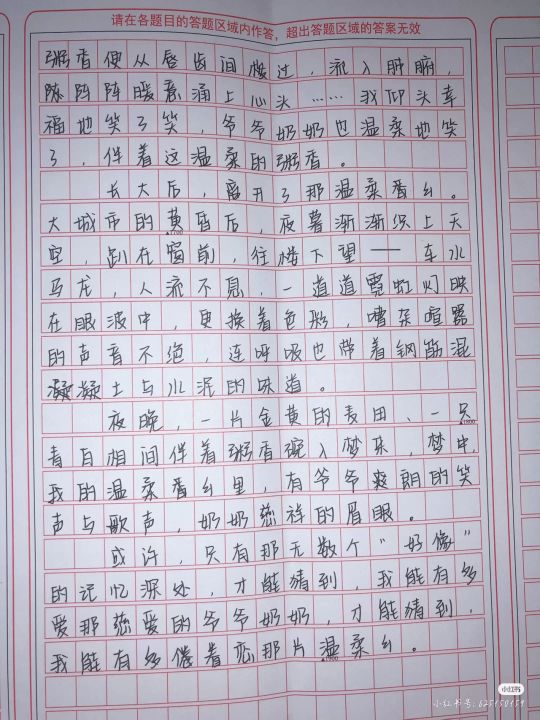 请在各题目的答题区域内作答，超出答题区域的答案无效
粥香便从唇齿间楼过，流入肝腑，
阵阵暖意涌上心头……我仰头幸
福地笑了笑，爷爷奶奶也温柔地笑
了，伴着这温柔的粥香。
长大后，离开了那温柔香乡。
大城市的黄昏后，夜暮渐渐织上天
▲1700
空，趴在窗前，往楼下望——车水
马龙，人流不息，一道道霓虹灯映
在眼波中，更换着色彩，嘈杂喧嚣
的声音不绝，连呼吸也带着钢筋混
凝凝土与水泥的味道。
夜晚，一片金黄的麦田、一只
▲1800
青白相间伴着粥香碗入梦来，梦中，
我的温柔香乡里，有爷爷爽朗的笑
声与歌声，奶奶慈祥的眉眼。
或许，只有那无数个“好像”
的记忆深处，才能猜到，我能有多
爱那慈爱的爷爷奶奶，才能猜到，
我能有多倦着恋那片温柔乡。
▲1900
小红书
小红书号:625150159